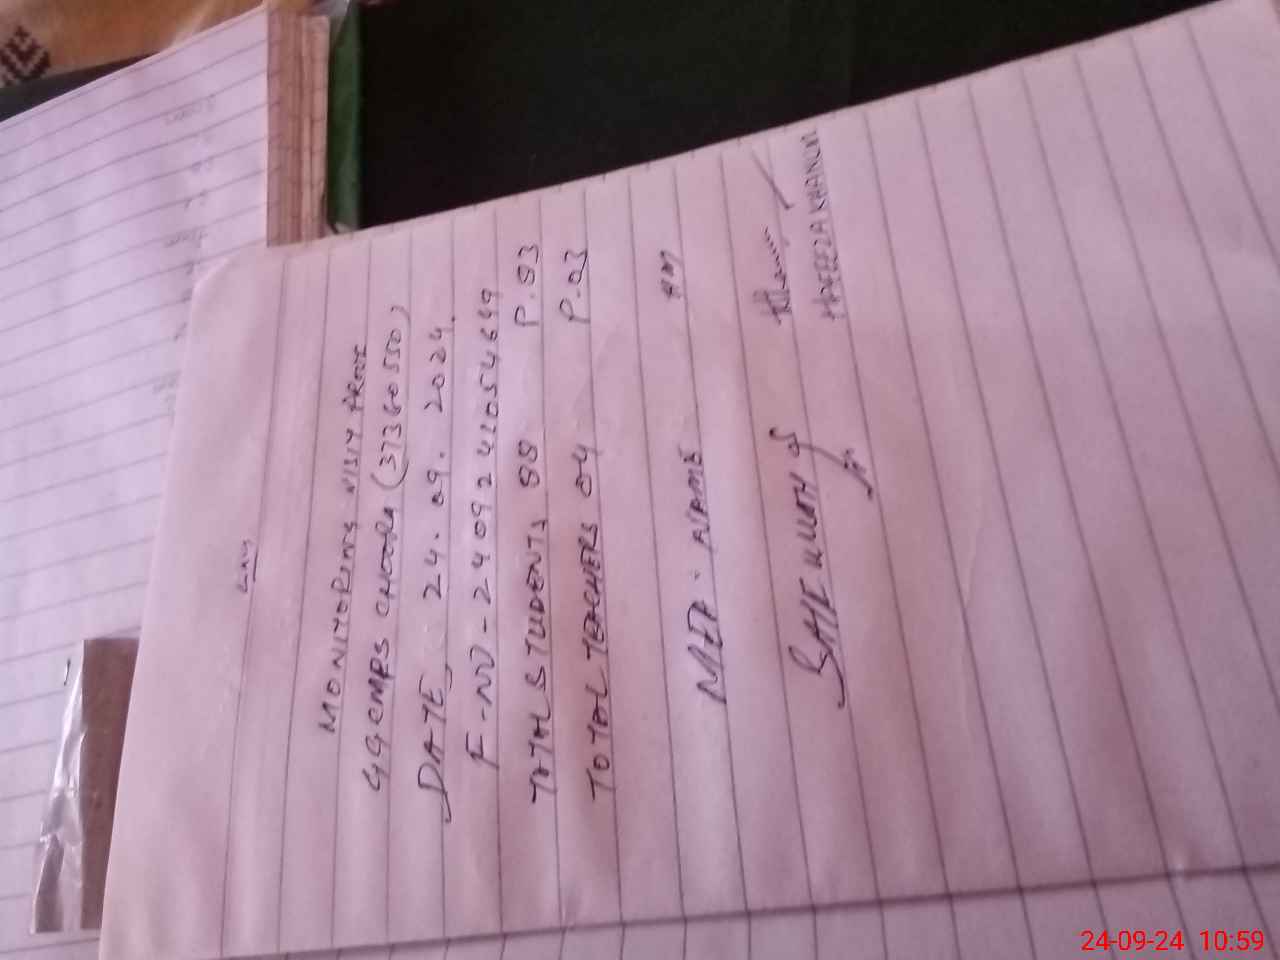 MONITORING VISIT PROOF
GGCMPS CHOORA (37360550)
DATE 24.09.2024.
F-NO - 2409242054699
TOTAL STUDENTS 88 P.83
TOTAL TEACHERS 04 P.03
MEA. NAME HM
HAFEEZA KHANUM
24-09-24 10:59